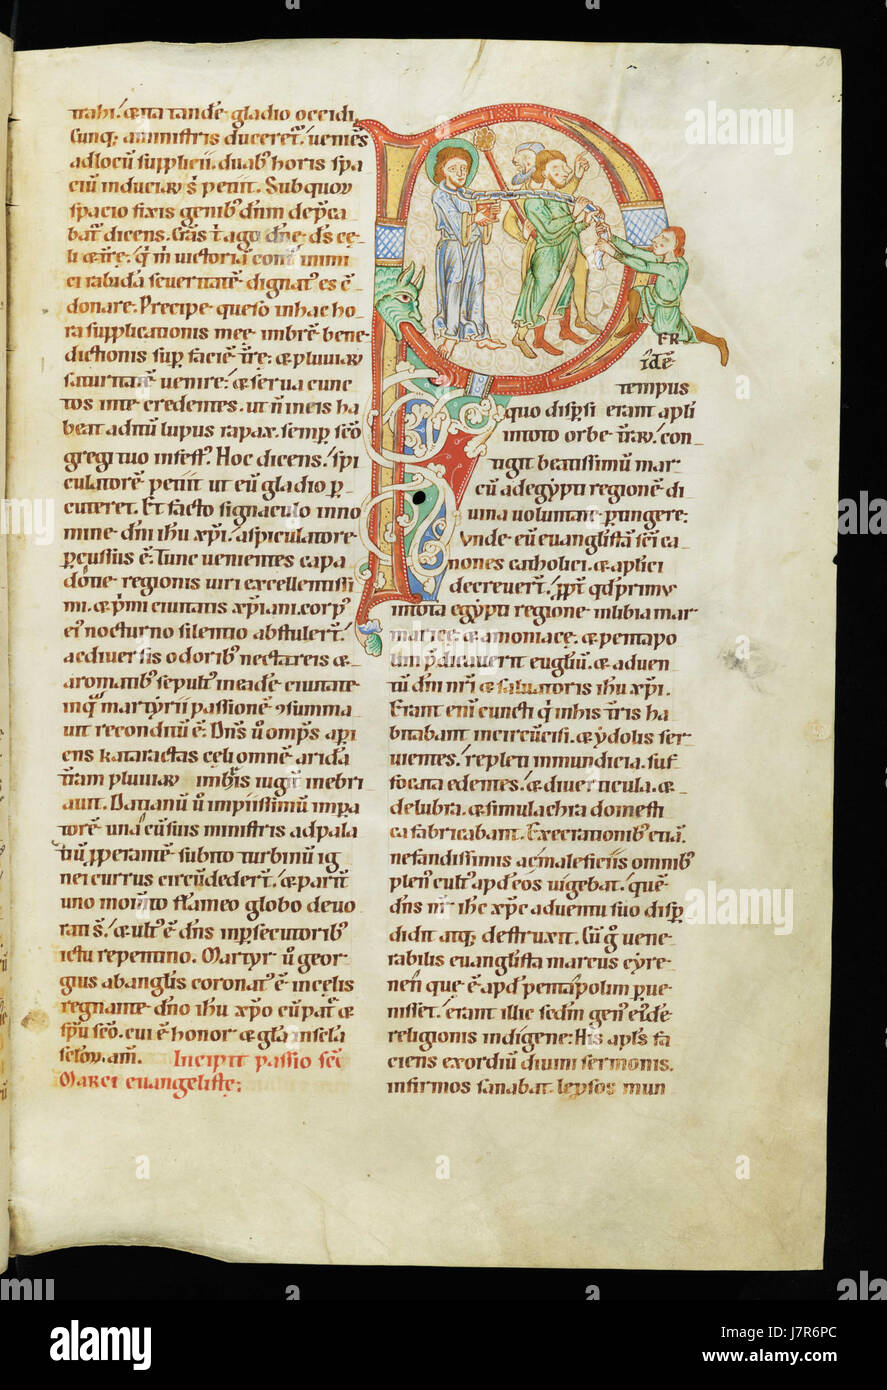 50
trahi. & ita tandē gladio occidi.
Cunq; aministris duceret͛. ueniēs
adlocū supplicii. duab; horis spa
ciū induciarꝝ s͛ petiit. Sub quorꝝ
spacio fixis genib; dn̄m dep̄ca
bat͛ dicens. Grās t̄ ago dn̄e. dš cę
li & t̄re. q͛ m̄ uictoriā
donare. Precipe queso inhac ho
ra supplicationis mee imbrē bene
dictionis sup faciē t̄re. & pluuiarꝝ
saturitatē uenire. & serua cunc
tos inte credentes. ut n̄ ineis ha
beat aditū lupus rapax. semp̱ sc̄o
gregi tuo infest;. Hoc dicens. spi
culatorē petiit ut eū gladio ꝑ
cuteret. Et facto signaculo inno
mine dn̄i ihu xp̄i. aspiculatore
ꝑcussus ē. Tunc uenientes capa
docie regionis uiri excellentissi
mi. & p͛mi ciuitatis xp̄iani. corp;
ei; nocturno silentio abstulert͛.
ac diuersis odorib; nectareis &
aromatib; sepult; in eadē ciuitate
inq͛ martyrii passionē ꝯsumma
uit reconditū ē. Dn̄s ū omp̄s apī
ens kataractas cęli omnē aridā
t̄ram pluuiarꝝ imb͛ib; iugit͛ inebri
auit. Datianū ū impiissimū imp̱a
torē una cū suis ministris ad pala
tiū ꝓperantē subito turbinū ig
nei currus circūdedert͛. & parit͛
uno mom̄to flameo globo deuo
rati s̄. & ult; ē dn̄s inp̱secutorib;
ictu repentino. Martyr ū geor
gius ab angl̄is coronat; ē in celis
regnante dn̄o ihu xp̄o cū pat͛ &
sp̄u sc̄o. cui ē honor & gl̄a in sc̄la
sc̄lorꝝ. am̄. Incipit passio sc̄i
Marci euangelistę:
PER
idē
tempus
quo disp̱si erant ap̄li
intoto orbe t̄rarꝝ. con
tigit beatissimū mar
cū ad egypti regionē di
uina uoluntate ꝑtingere:
Vnde eū euanglistā sc̄i ca
nones catholici & ap̄lici
decreuert͛. ꝓpt͛ qd̄ primus
intota egypti regione. in libia mar
maricę. & amoniacę. & pentapo
lim p̄dicauerit eugliū. & aduen
tū dn̄i nr̄i & saluatoris ihu xp̄i.
Erant enī cuncti q͛ inhis t̄ris ha
bitabant incircūcisi. & ydolis ser
uientes. repleti inmundicia. suf
focata edentes. & diuerticula. &
delubra. & simulachra domesti
ca fabricabant. Execrationib; etiā
nefandissimis ac maleficiis omnib;
plen; cult; ap̱d eos uigebat. quē
dn̄s nr̄ ihc xp̄c aduentu suo disp̱
didit atq; destruxit. Cū g̊ uene
rabilis euanglista marcus cyre
nen que ē ap̱d pentapolim p̱ue
nisset. erant illic sedm̄ gen; eidē
religionis indigenę: His ap̄ls fa
ciens exordiū diuini sermonis.
infirmos sanabat. lep̱sos mun
alamy
J7R6PC
www.alamy.com